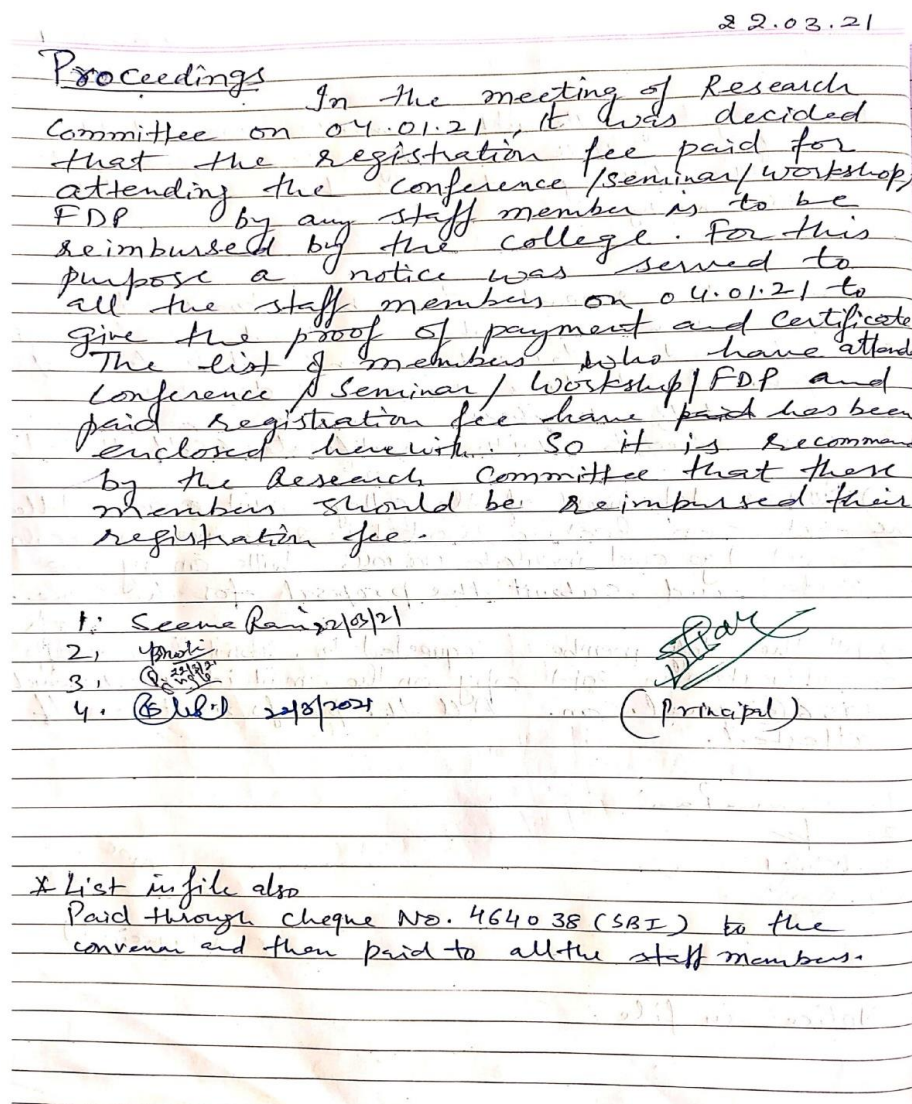 22.03.21
Proceedings
In the meeting of Research
Committee on 04.01.21, it was decided
that the registration fee paid for
attending the conference /seminar/workshop/
FDP by any staff member is to be
reimbursed by the college. For this
purpose a notice was served to
all the staff members on 04.01.21 to
give the proof of payment and certificate
The list of members who have attend
conference / seminar / workshop / FDP and
paid registration fee have paid has been
enclosed herewith. So it is recommen
by the Research Committee that these
members should be reimbursed their
registration fee.
1. Seema Rani 22/03/21
2,
3, 22/3/21
4. 22/3/2021
(Principal)
* List in file also
Paid through cheque No. 464038 (SBI) to the
convenor and then paid to all the staff members.